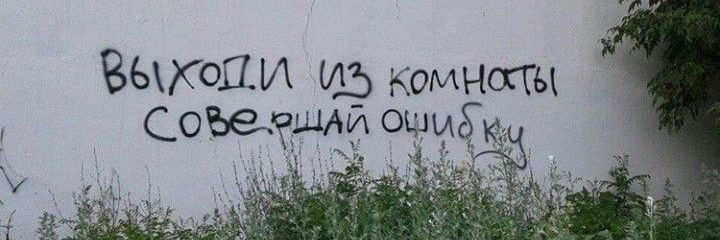 ВЫХОДИ ИЗ КОМНАТЫ
СОВЕРШАЙ ОШИБКУ